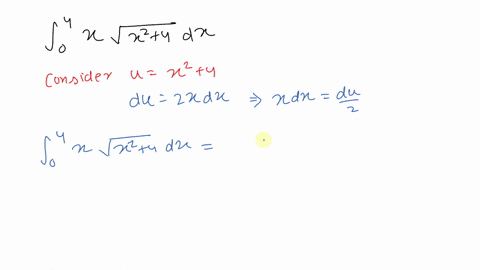 ∫₀⁴ x √(x²+4) dx
Consider u = x²+4
du = 2x dx ⇒ x dx = du/2
∫₀⁴ x √(x²+4) dx =